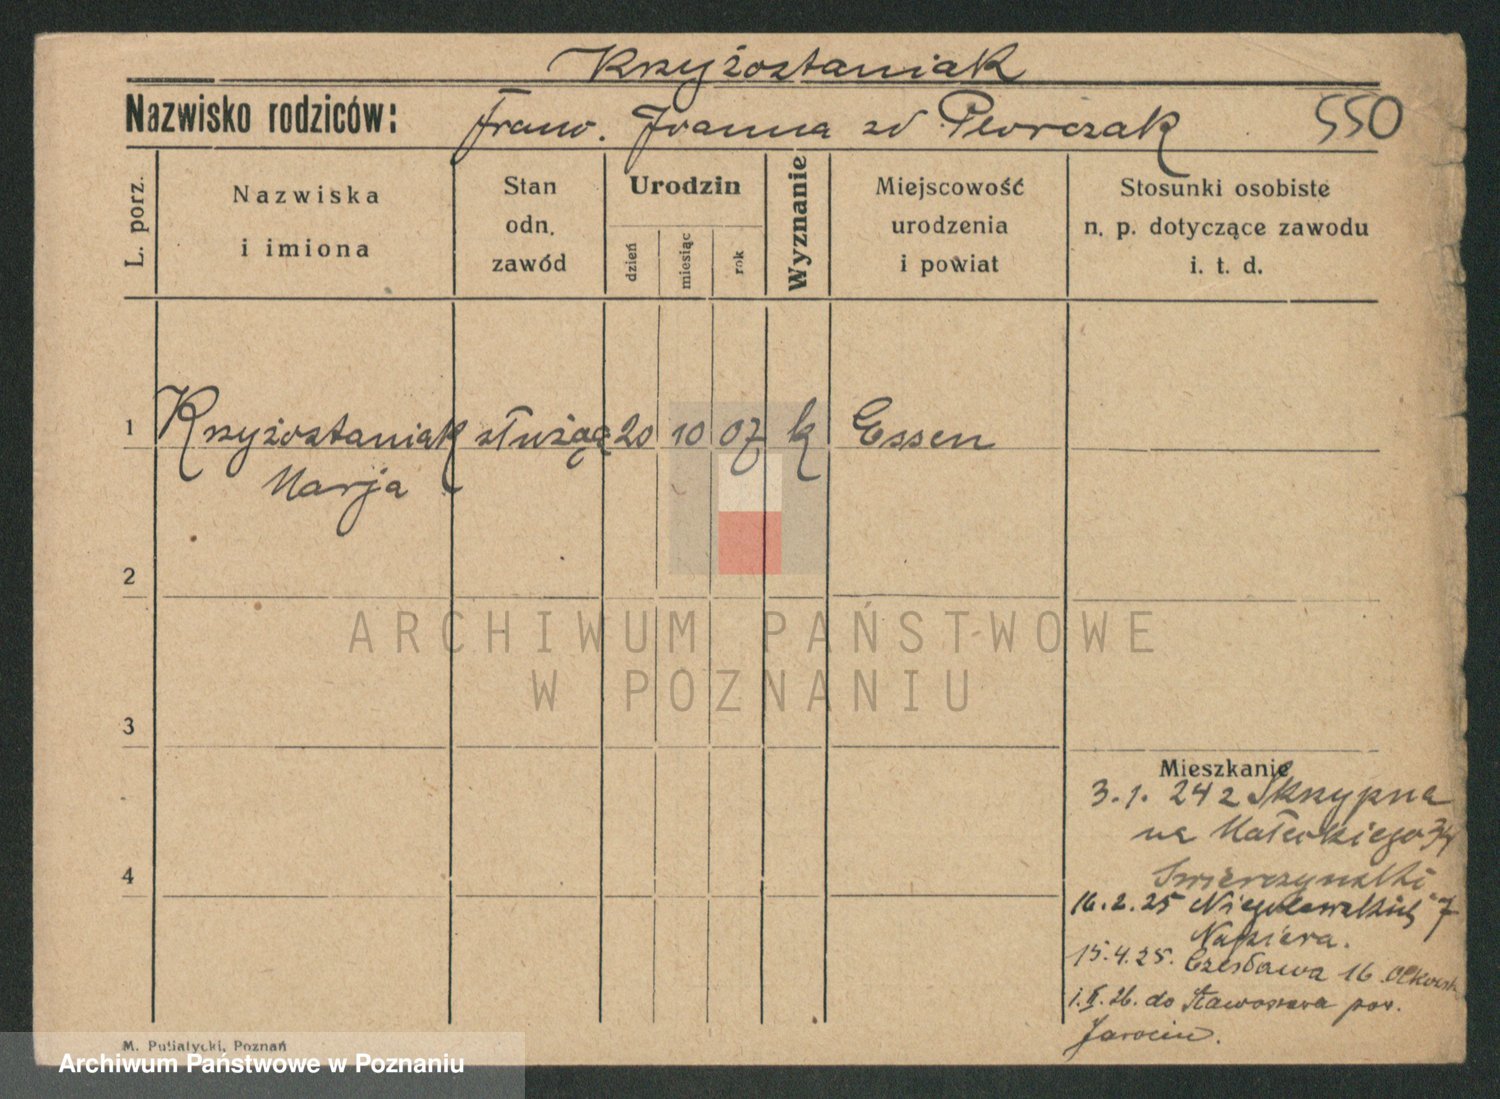 Krzyżostaniak
Nazwisko rodziców: Franc. Joanna zd Piorczak 550
L. porz.
Nazwiska i imiona
Stan odn. zawód
Urodzin
dzień
miesiąc
rok
Wyznanie
Miejscowość urodzenia i powiat
Stosunki osobiste n. p. dotyczące zawodu i. t. d.
1 Krzyżostaniak służąca 20 10 07 k Essen
Marja
2
3
Mieszkanie
3.1.24 z Skrzypna
na Małeckiego 34
4
Świerczyński
16.2.25 Niegolewskich 7
Napiera.
15.4.25. Czesława 16
1.X.26. do pow.
Jarocin.
M. Putiatycki, Poznań
ARCHIWUM PAŃSTWOWE
W POZNANIU
Archiwum Państwowe w Poznaniu